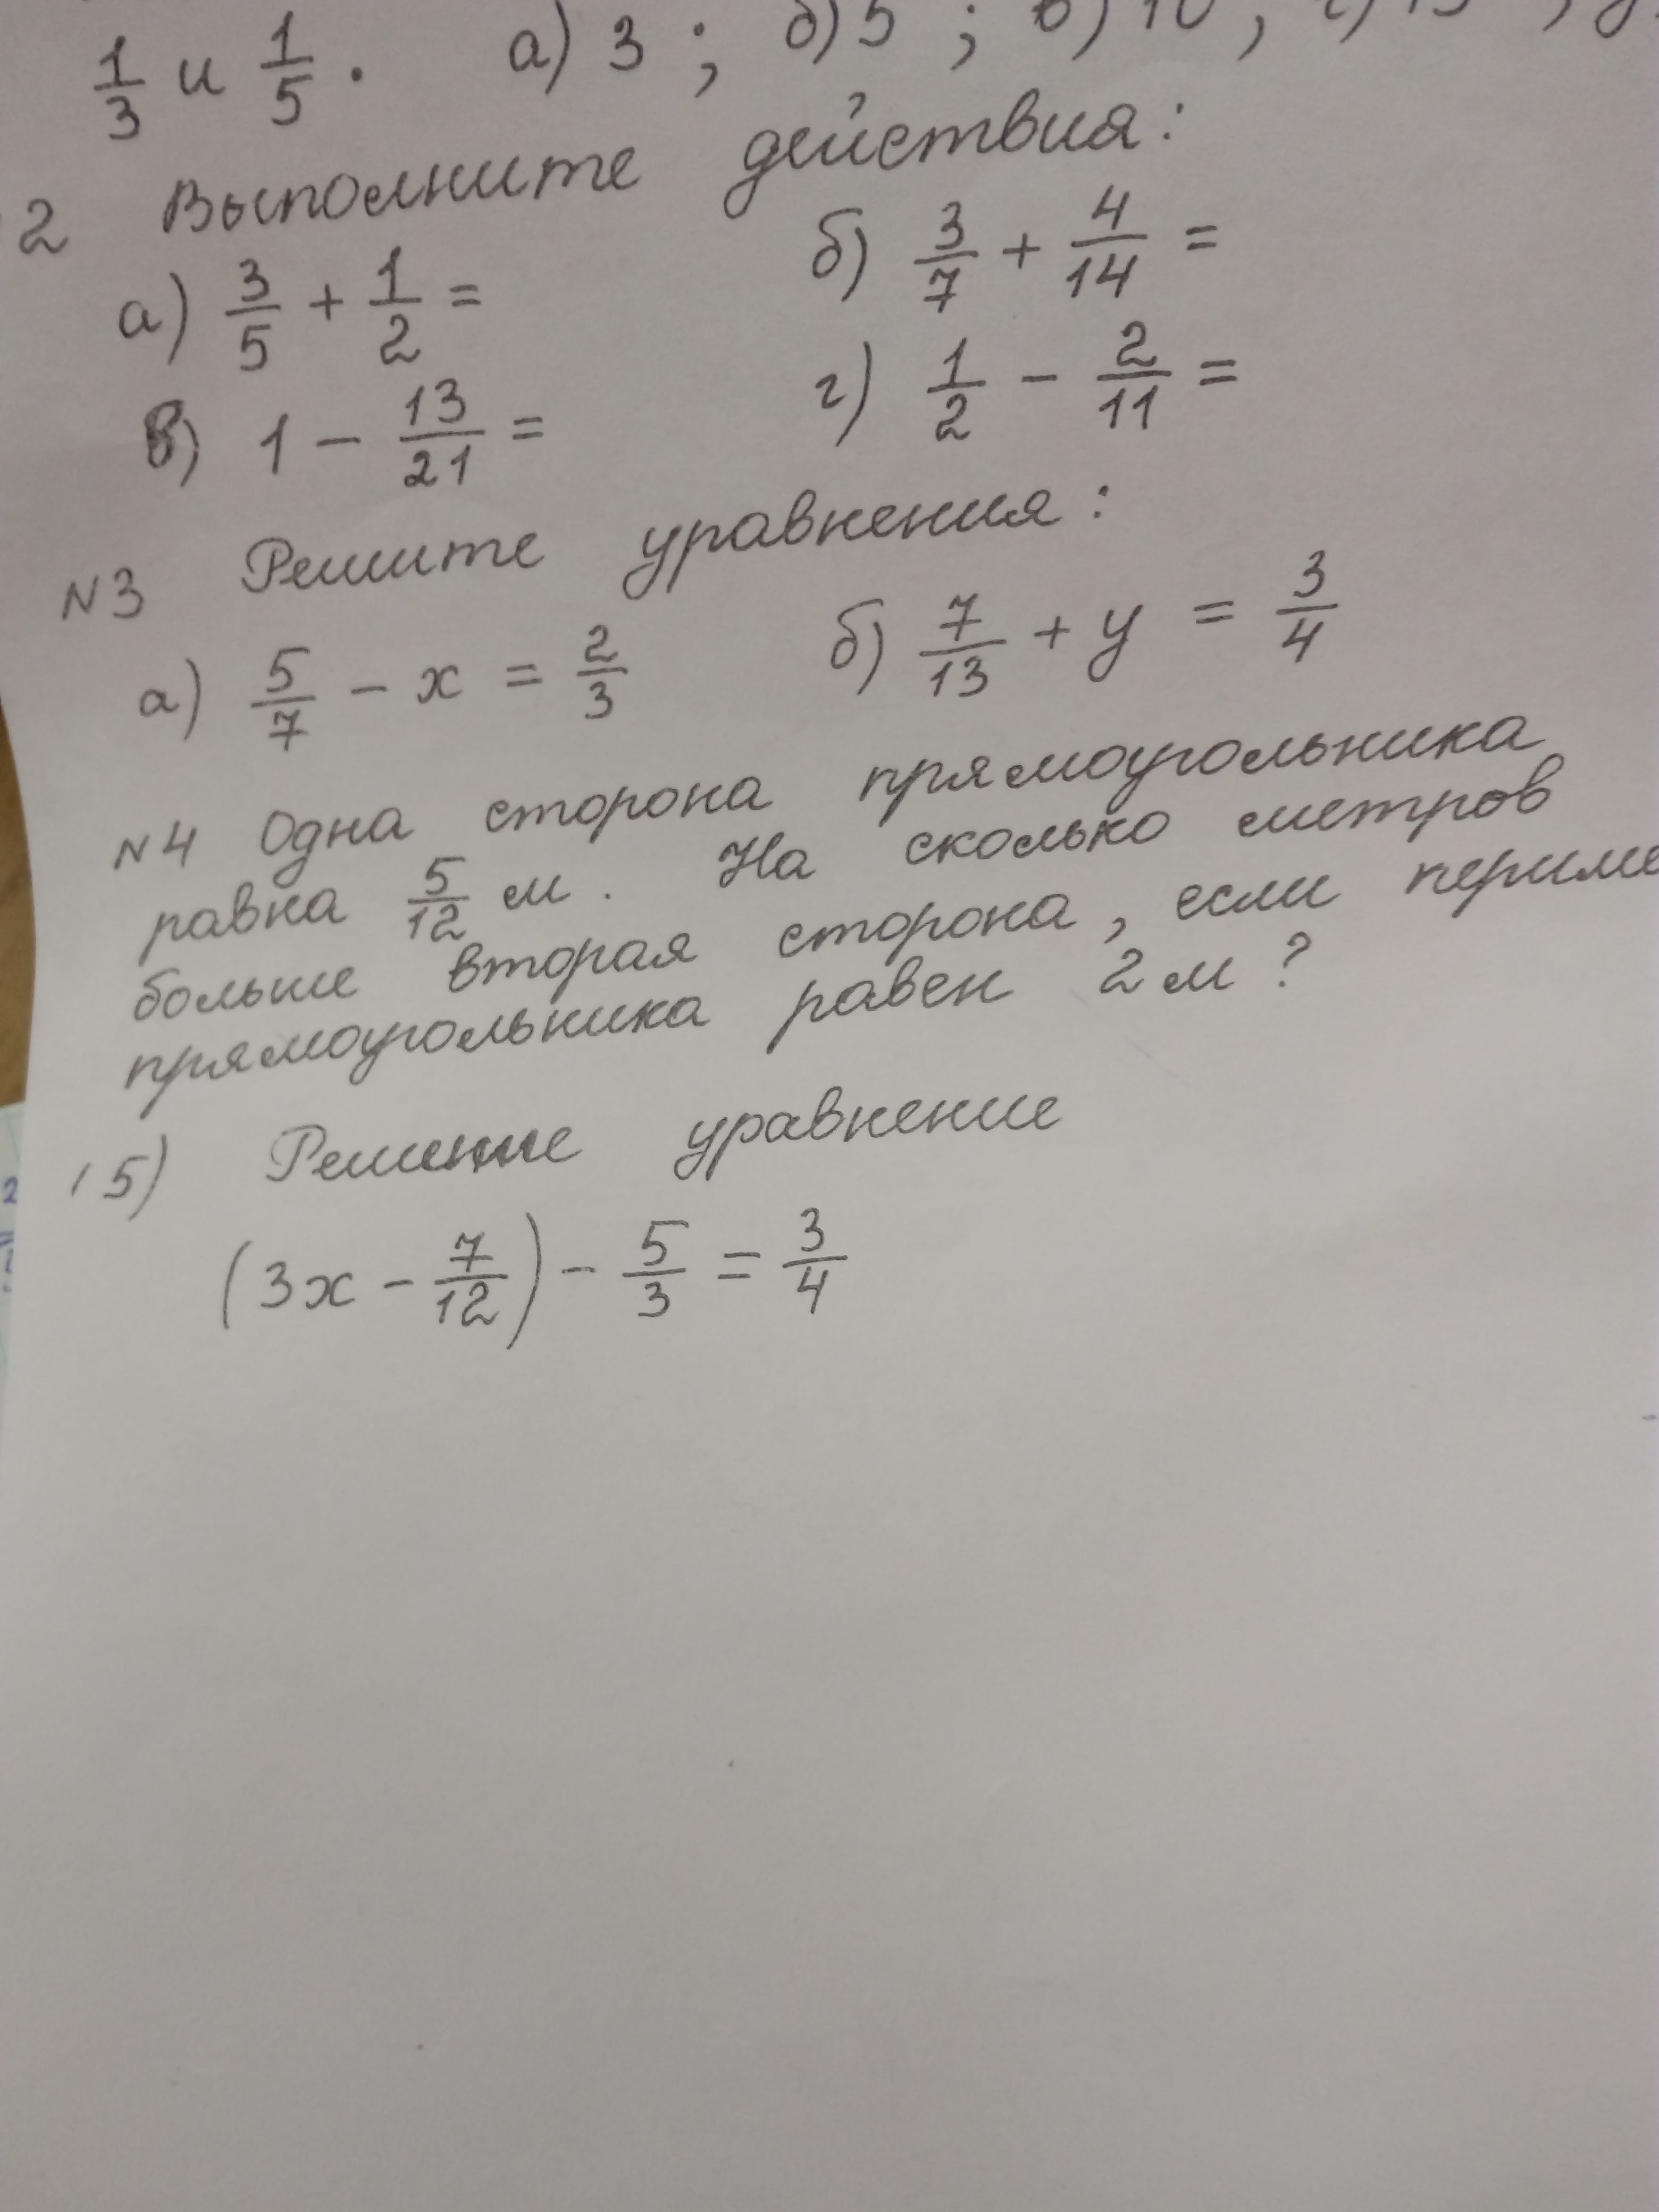 1/3 и 1/5. а) 3 ; б) 5 ; в) 10 ;
2 Выполните действия:
а) 3/5 + 1/2 = б) 3/7 + 4/14 =
в) 1 - 13/21 = г) 1/2 - 2/11 =
N3 Решите уравнения:
а) 5/7 - x = 2/3 б) 7/13 + y = 3/4
N4 Одна сторона прямоугольника
равна 5/12 м. На сколько метров
больше вторая сторона, если периме
прямоугольника равен 2 м ?
5) Решение уравнение
(3x - 7/12) - 5/3 = 3/4